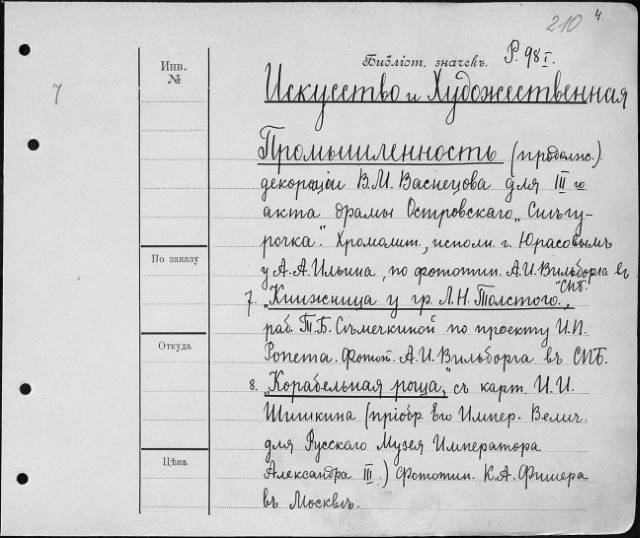 210 4.
Библіот. значекъ. Р. 98 I.
7
Инв.
№
Искусство и Художественная
Промышленность (продолж.)
декораціи В.М. Васнецова для III го
акта драмы Островскаго „Снѣгу-
рочка". Хромолит., исполн. г. Юрасовымъ
По заказу
у А.А. Ильина, по фототип. А.И. Вильборга въ
СПБ.
7. „Книжница у гр. Л.Н. Толстого",
раб. Т.Б. Сѣмечкиной по проекту И.П.
Откуда
Ропета. Фотот. А.И. Вильборга въ СПБ.
8. „Корабельная роща", съ карт. И.И.
Шишкина (пріобр. Его Импер. Велич.
для Русскаго Музея Императора
Цѣна
Александра III.) Фототип. К.А. Фишера
въ Москвѣ.